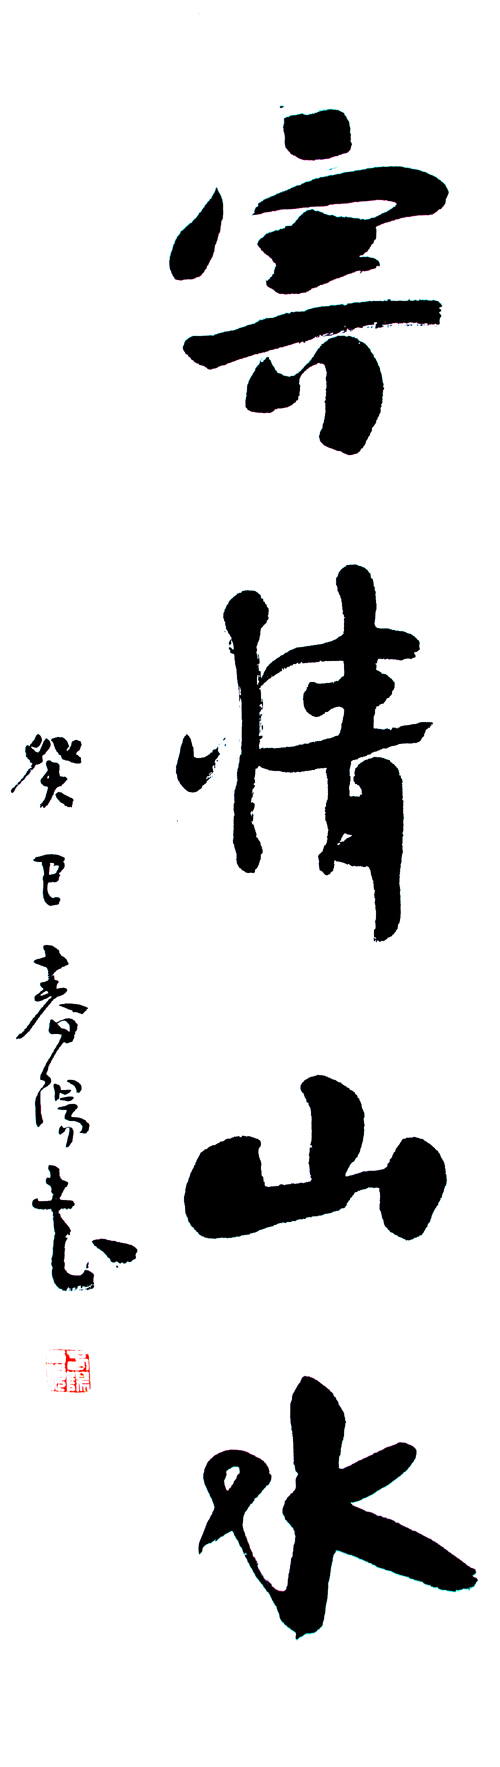 寄情山水
癸巳春陽書